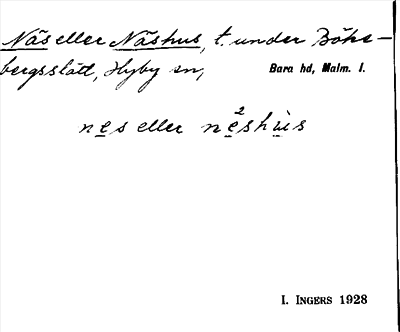 Näs eller Näshus, t. under Böks-
bergsslätt, Hyby sn, Bara hd, Malm. l.
nes eller ne²shùs
I. INGERS 1928